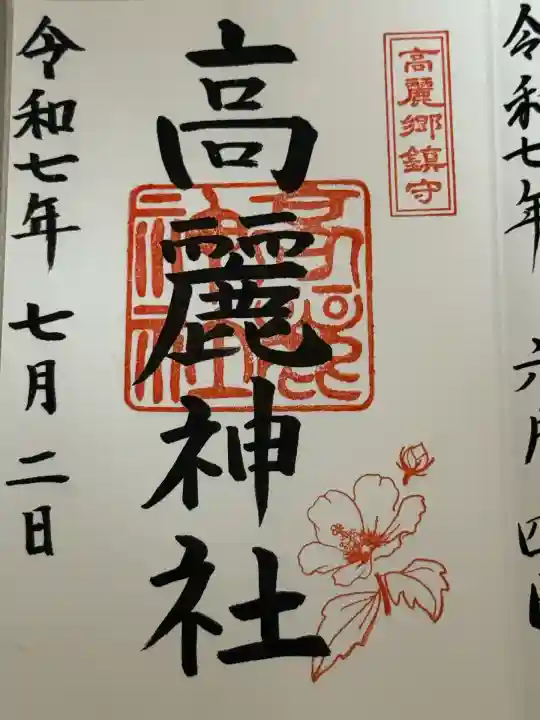 令和七年 六月 四日
高麗郷鎮守
高麗神社
高麗神社
令和七年 七月 二日